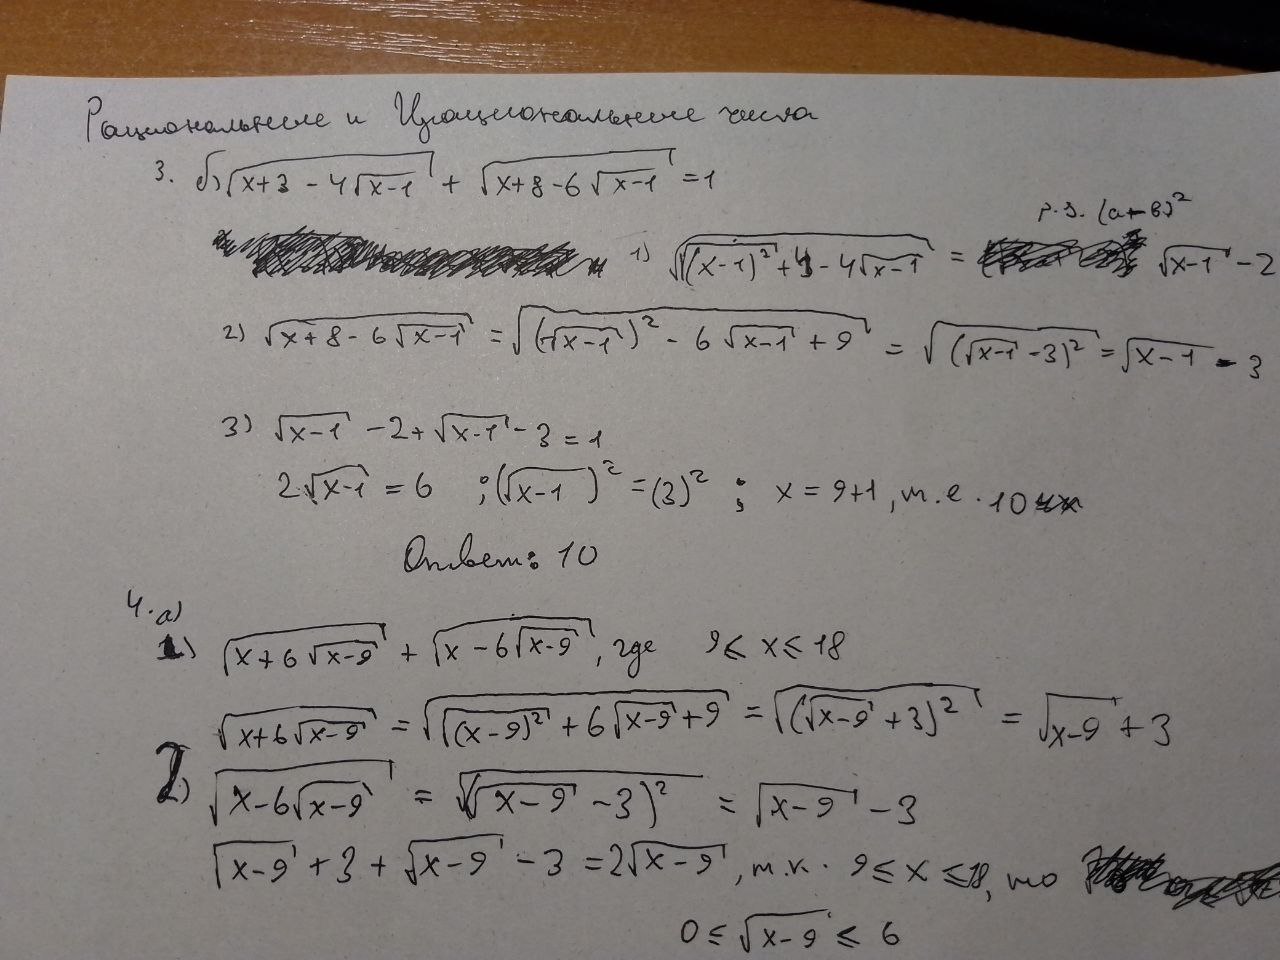 Рациональные и Иррациональные числа
3. б) √(x+3 - 4√(x-1)) + √(x+8-6√(x-1)) = 1
р.з. (a-b)²
1) √(√(x-1)² + 4 - 4√(x-1)) = √(x-1) - 2
2) √(x+8-6√(x-1)) = √((√(x-1))² - 6√(x-1) + 9) = √((√(x-1) - 3)²) = √(x-1) - 3
3) √(x-1) - 2 + √(x-1) - 3 = 1
2√(x-1) = 6 ; (√(x-1))² = (3)² ; x = 9+1, т.е. 10
Ответ: 10
4. а)
1) √(x+6√(x-9)) + √(x-6√(x-9)), где 9 ≤ x ≤ 18
√(x+6√(x-9)) = √(√(x-9)² + 6√(x-9) + 9) = √((√(x-9) + 3)²) = √(x-9) + 3
2) √(x-6√(x-9)) = √((√(x-9) - 3)²) = √(x-9) - 3
√(x-9) + 3 + √(x-9) - 3 = 2√(x-9), т.к. 9 ≤ x ≤ 18, то
0 ≤ √(x-9) ≤ 6